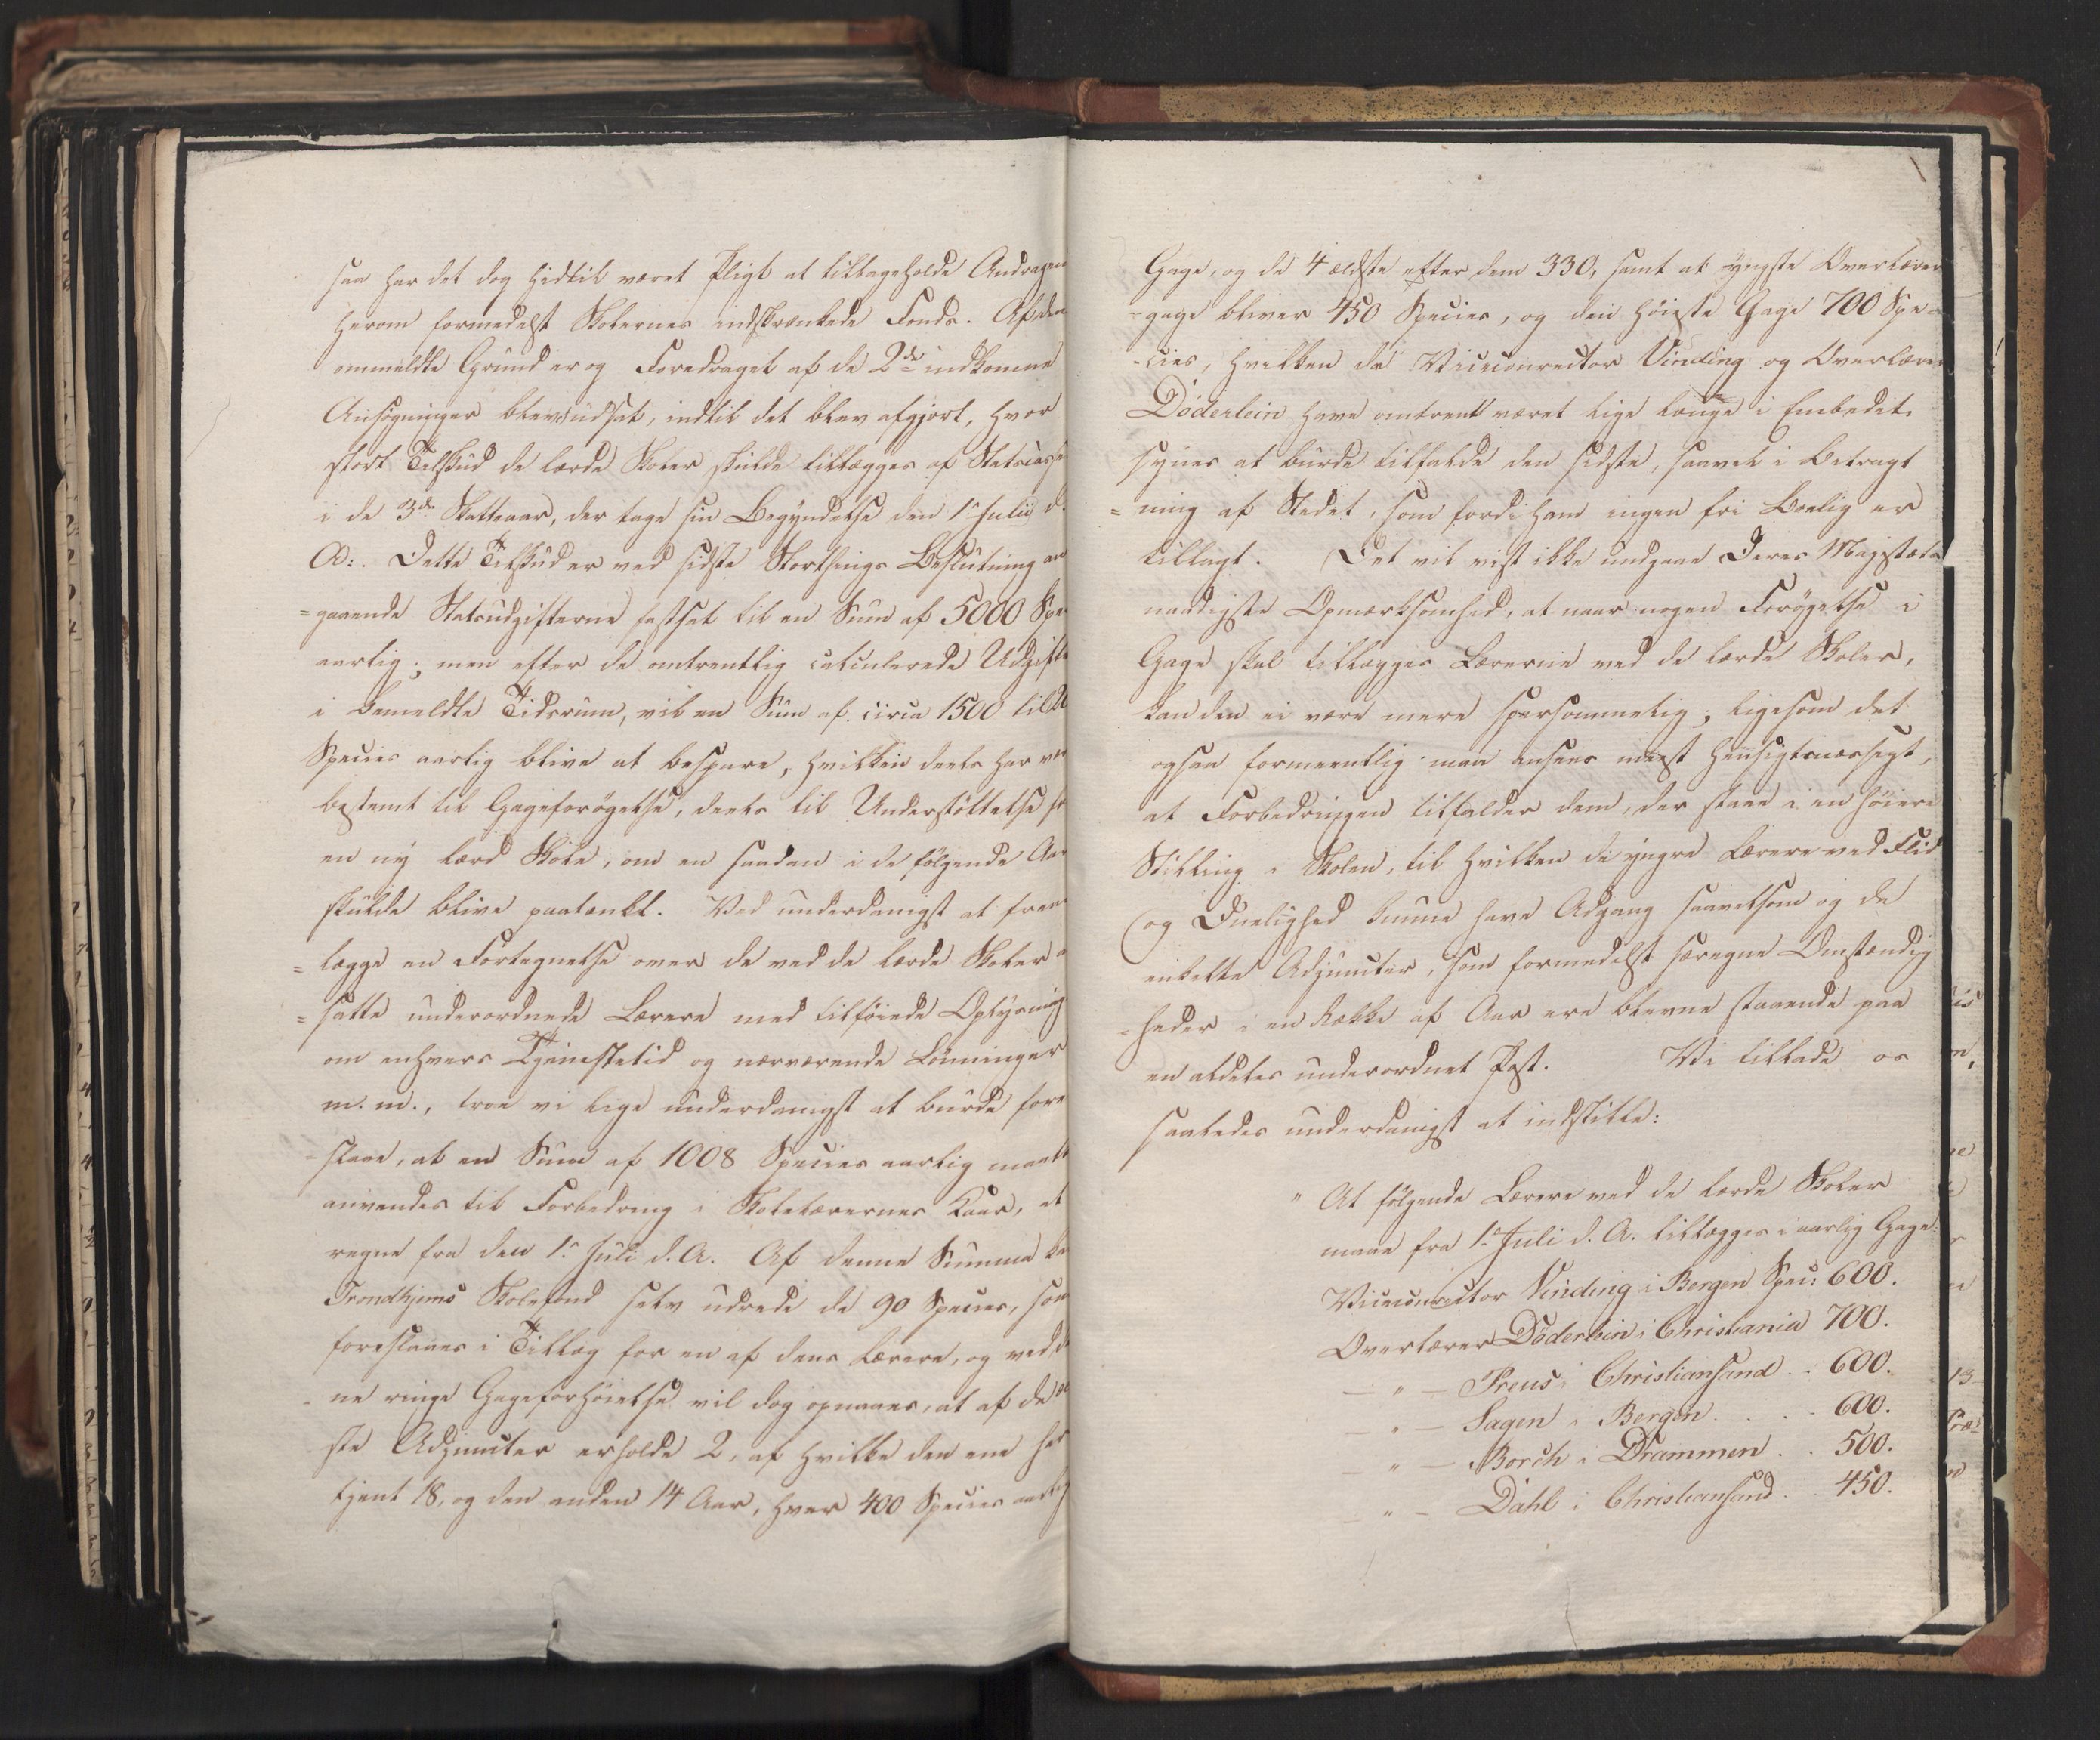 saa har det dog hidtil været Pligt at tilbageholde Andragen
herom formedelst Skolernes indskrænkede Fonds. Af den
ommeldte Grund er og Foredraget af de 2de indkomne
Ansøgninger bleven udsat, indtil det blev afgjort, hvor
stort Tilskud de lærde Skoler skulde tillægges af Statscassen
i de 3de Skatteaar, der tage sin Begyndelse den 1ste Julii d.
A:. Dette Tilskud er ved sidste Storthings Beslutning an
=gaaende Statsudgifterne fastsat til en Sum af 5000 Spe
aarlig; men efter de omtrentlig calculerede Udgifte
i bemeldte Tidsrum, vil en Sum af circa 1500 til
Species aarlig blive at bespare, hvilken deels har
bestemt til Gageforøgelse, deels til Understøttelse
en ny lærd Skole, om en saadan i de følgende Aar
skulde blive paatænkt. Ved underdanigst at frem
=lægge en Fortegnelse over de ved de lærde Skoler
=satte underordnede Lærere med tilføiede Oplysning
om enhvers Tjenestetid og nærværende Lønninger
m. m., troe vi lige underdanigst at burde fore
=slaae, at en Sum af 1008 Species aarlig maatte
anvendes til Forbedring i Skolelærernes Kaar, at
regne fra den 1ste Juli d. A. Af denne Summa
Trondhjems Skolefond selv udrede de 90 Species, som
foreslaaes i Tillæg for en af dens Lærere, og ved
ne ringe Gageforhøielse vil dog opnaaes, at af de
ste Adjuncter erholde 2, af hvilke den ene har
tjent 18, og den anden 14 Aar, hver 400 Species aarlig
Gage, og de 4 ældste efter dem 330, samt at yngste Overlærer
=gage bliver 450 Species, og den høieste Gage 700 Spe-
-cies, hvilken da Viceconrector Vinding og Overlærer
Döderlein have omtrent været lige længe i Embedet,
synes at burde tilfalde den sidste, saavel i Betragt
=ning af Stedet, som fordi ham ingen fri Bolig er
tillagt. Det vil vist ikke undgaae Deres Majestæts
naadigste Opmærksomhed, at naar nogen Forøgelse i
Gage skal tillægges Lærerne ved de lærde Skoler,
kan den ei være mere sparsommelig; ligesom det
ogsaa formeentlig maa ansees meest hensigtsmæssigt,
at Forbedringen tilfalder dem, der staae i en høiere
Stilling i Skolen, til hvilken de yngre Lærere ved Flid
og Duelighed kunne have Adgang saavelsom og de
enkelte Adjuncter, som formedelst særegne Omstændig
=heder i en Række af Aar ere blevne staaende paa
en aldeles underordnet Post. Vi tillade os
saaledes underdanigst at indstille:
" At følgende Lærere ved de lærde Skoler
maae fra 1ste Juli d. A. tillægges i aarlig Gage:
Viceconrector Vinding i Bergen Spec: 600.
Overlærer Döderlein i Christiania 700.
— " — Preus i Christiansand . . 600.
— " — Sagen i Bergen. . . . 600.
— " — Borch i Drammen . . 500.
— " — Dahl i Christiansand . . 450.